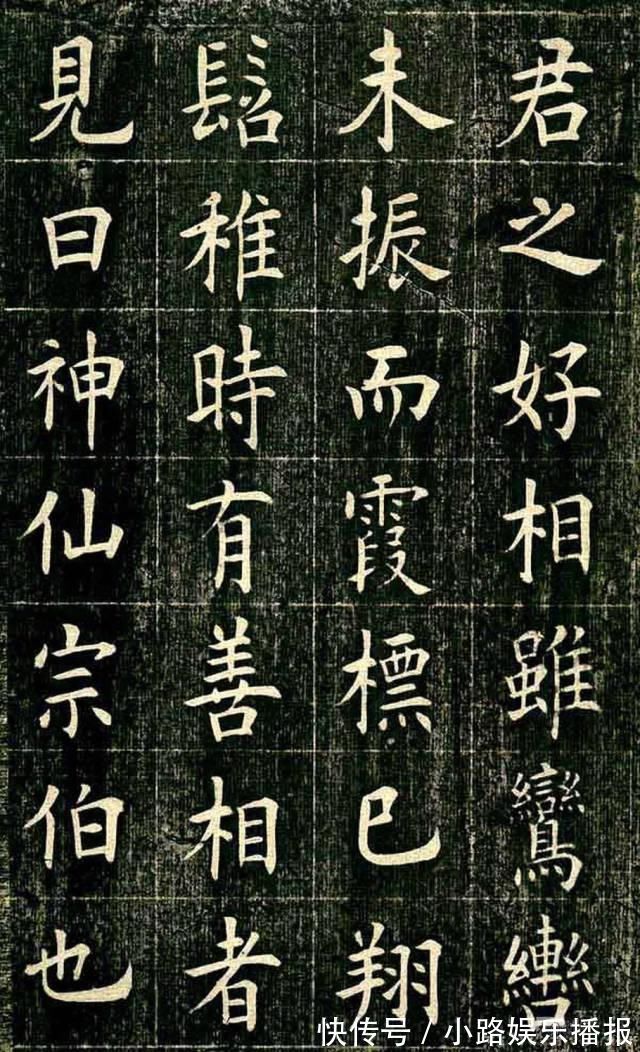 君之好相雖鸞轡
未振而霞標已翔
髫稚時有善相者
見曰神仙宗伯也
快传号/小路娱乐播报